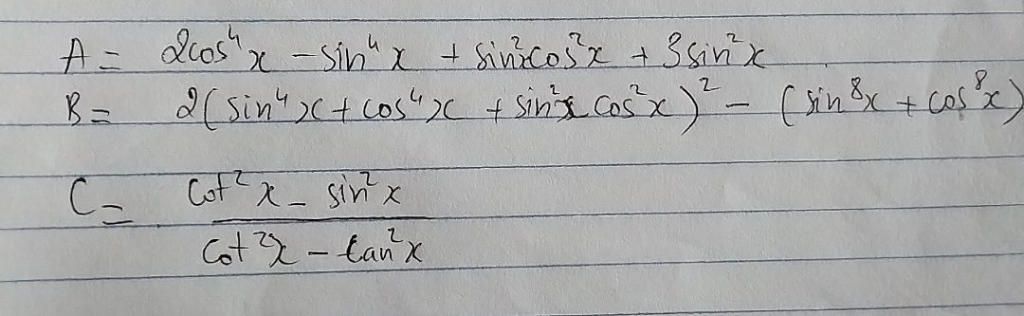 A = 2cos⁴x - sin⁴x + sin²xcos²x + 3sin²x
B = 2(sin⁴x + cos⁴x + sin²x cos²x)² - (sin⁸x + cos⁸x)
C = cot²x - sin²x
cot²x - tan²x